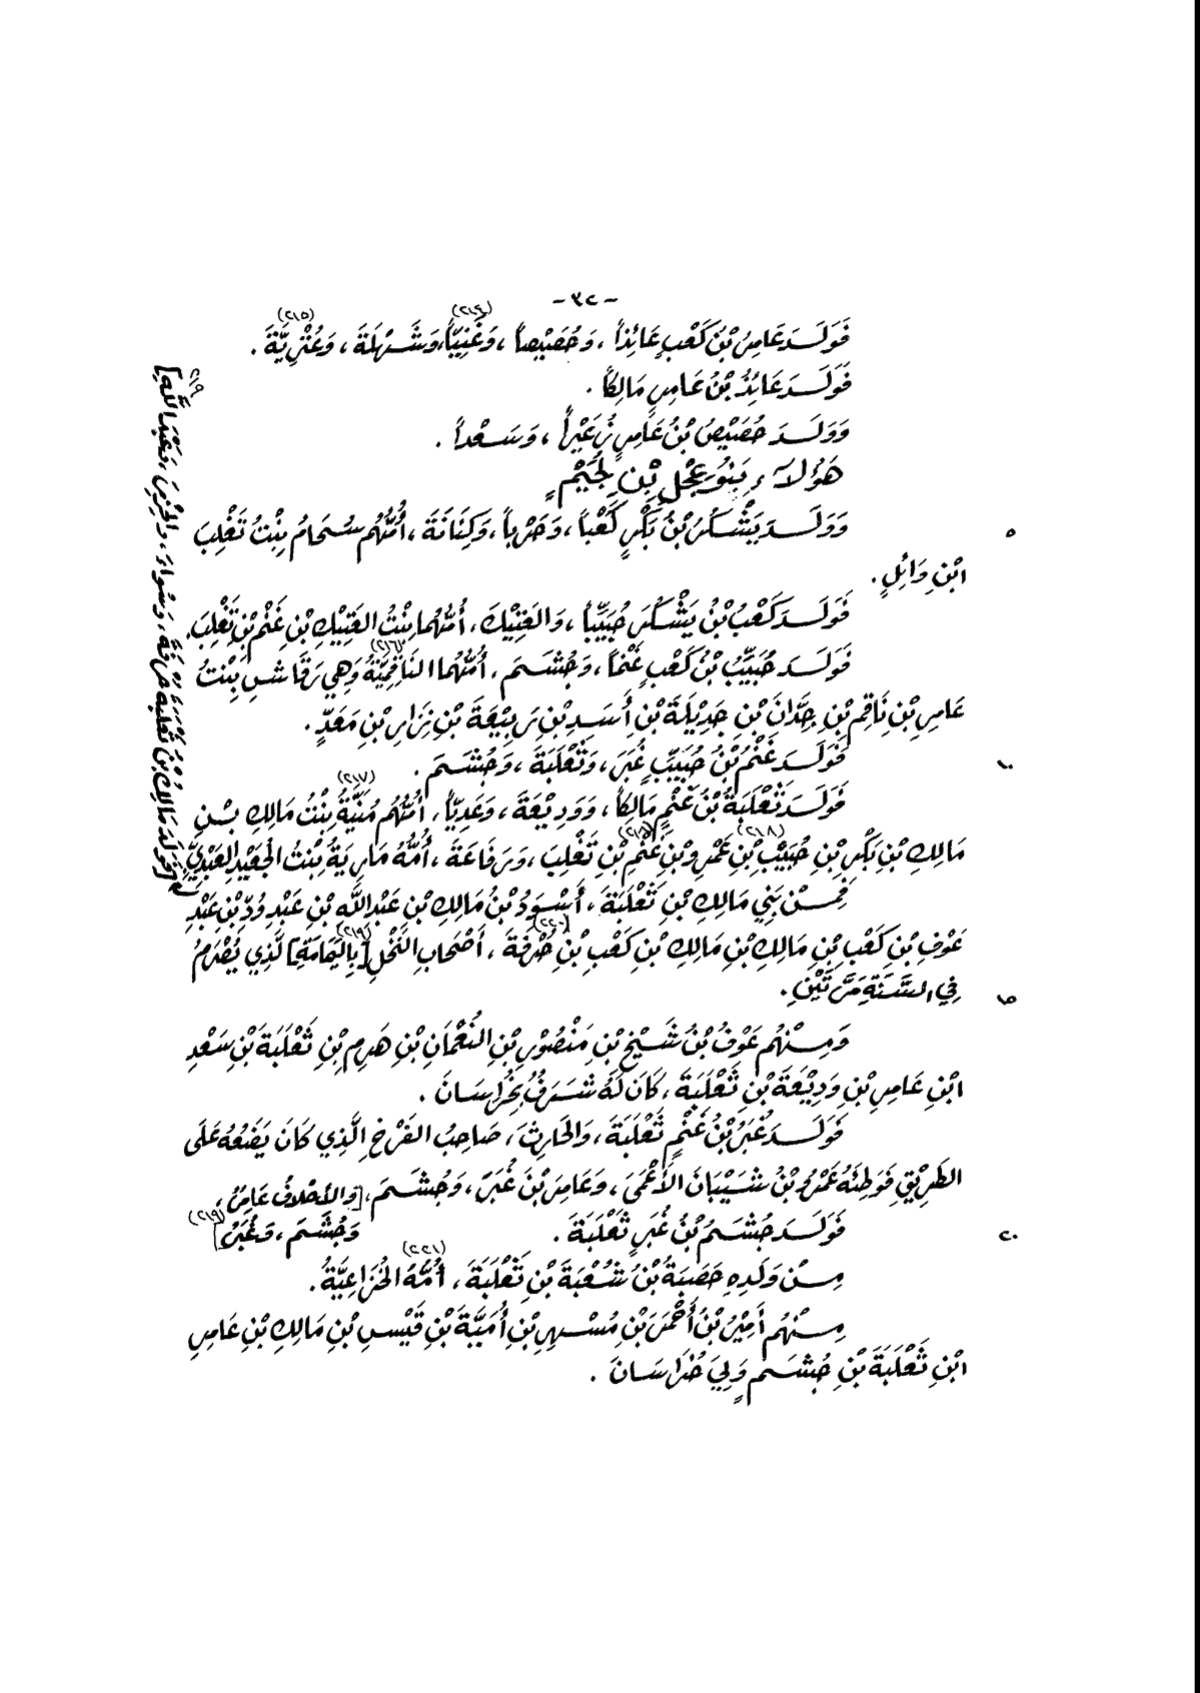 - ٣٢ -
(٢١٤) (٢١٥)
فَوَلَدَ عَامِرُ بْنُ كَعْبٍ عَائِذاً ، وَحُصَيْصاً ، وَغَنِيّاً، وَشَهْلَةَ ، وَعُتْرِيَّةَ .
فَوَلَدَ عَائِذُ بْنُ عَامِرٍ مَالِكاً .
وَوَلَدَ حُصَيْصُ بْنُ عَامِرٍ نُعَيْراً ، وَسَعْداً .
هَؤُلَاءِ بَنُو عِجْلِ بْنِ لُجَيْمٍ
وَوَلَدَ يَشْكُرُ بْنُ بَكْرٍ كَعْباً ، وَحَرْباً ، وَكِنَانَةَ ، أُمُّهُم سُحَامُ بِنْتُ تَغْلِبَ ٥
ابْنِ وَائِلٍ .
فَوَلَدَ كَعْبُ بْنُ يَشْكُرَ حُبَيِّباً ، وَالعَتِيْكَ ، أُمُّهُما بِنْتُ العَتِيْكِ بْنِ غَنْمِ بْنِ تَغْلِبَ .
فَوَلَدَ حُبَيِّبُ بْنُ كَعْبٍ غَنْماً ، وَجُشَمَ ، أُمُّهُما النَاقِمِيَّةُ (٢١٦) وَهِي رَقَاشِ بِنْتُ
عَامِرِ بْنِ نَاقِمِ بْنِ جَدَّانَ بْنِ جَدِيْلَةَ بْنِ أَسَدِ بْنِ رَبِيْعَةَ بْنِ نِزَارِ بْنِ مَعَدٍّ .
فَوَلَدَ غَنْمُ بْنُ حُبَيِّبٍ غُبَرَ ، وَثَعْلَبَةَ ، وَجُشَمَ . ١٠
فَوَلَدَ ثَعْلَبَةُ بْنُ غَنْمٍ مَالِكاً ، وَوَدِيْعَةَ ، وَعَدِيّاً ، أُمُّهُم مُنَيَّةُ (٢١٧) بِنْتُ مَالِكِ بْنِ
مَالِكِ بْنِ بَكْرِ بْنِ حُبَيْبِ (٢١٨) بْنِ عَمْرِو بْنِ غَنْمِ بْنِ تَغْلِبَ ، وَرِفَاعَةَ ، أُمُّهُ مَارِيَةُ بِنْتُ الجُعَيْدِ العَبْدِيِّ
[فَوَلَدَ مَالِكُ بْنُ ثَعْلَبَةَ حُرْفَةَ ، وَسُوَاءَ ، وَالحِرْمِزَ ، وَعَبْدَ اللَّهِ]
فَمِنْ بَنِي مَالِكِ بْنِ ثَعْلَبَةَ ، أَسْوَدُ بْنُ مَالِكِ بْنِ عَبْدِ اللَّهِ بْنِ عَبْدِ وُدِّ بْنِ عَبْدِ
عَوْفِ بْنِ كَعْبِ بْنِ مَالِكِ بْنِ مَالِكِ بْنِ كَعْبِ بْنِ حُرْفَةَ (٢٢٠) ، أَصْحَابِ النَّخْلِ [بِاليَمَامَةِ] (٢١٩) الَّذِي يُصْرَمُ
فِي السَّنَةِ مَرَّتَيْنِ . ١٥
وَمِنْهُم عَوْفُ بْنُ شَيْخِ بْنِ مَنْصُوْرِ بْنِ النُعْمَانِ بْنِ هَرِمِ بْنِ ثَعْلَبَةَ بْنِ سَعْدِ
ابْنِ عَامِرِ بْنِ وَدِيْعَةَ بْنِ ثَعْلَبَةَ ، كَانَ لَهُ شَرَفٌ بِخُرَاسَانَ .
فَوَلَدَ غُبَرُ بْنُ غَنْمٍ ثَعْلَبَةَ ، وَالحَارِثَ ، صَاحِبُ الفَرْخِ الَّذِي كَانَ يَضَعُهُ عَلَى
الطَرِيْقِ فَوَطِئَهُ عَمْرُو بْنُ شَيْبَانَ الأَعْمَى ، وَعَامِرَ بْنَ غُبَرَ ، وَجُشَمَ ، [وَالأَحْلافُ عَامِرٌ ،
فَوَلَدَ جُشَمُ بْنُ غُبَرٍ ثَعْلَبَةَ . وَجُشَم ، وَغُبَرْ] (٢١٩) ٢٠
مِنْ وَلَدِهِ حَصَبَةُ بْنُ شُعْبَةَ بْنِ ثَعْلَبَةَ ، أُمُّهُ (٢٢١) الخُزَاعِيَّةُ .
مِنْهُم أَمِيْرُ بْنُ أَحْمَرَ بْنِ مُسْهِرِ بْنِ أُمَيَّةَ بْنِ قَيْسِ بْنِ مَالِكِ بْنِ عَامِرِ
ابْنِ ثَعْلَبَةَ بْنِ جُشَمٍ وَلِيَ خُرَاسَانَ .